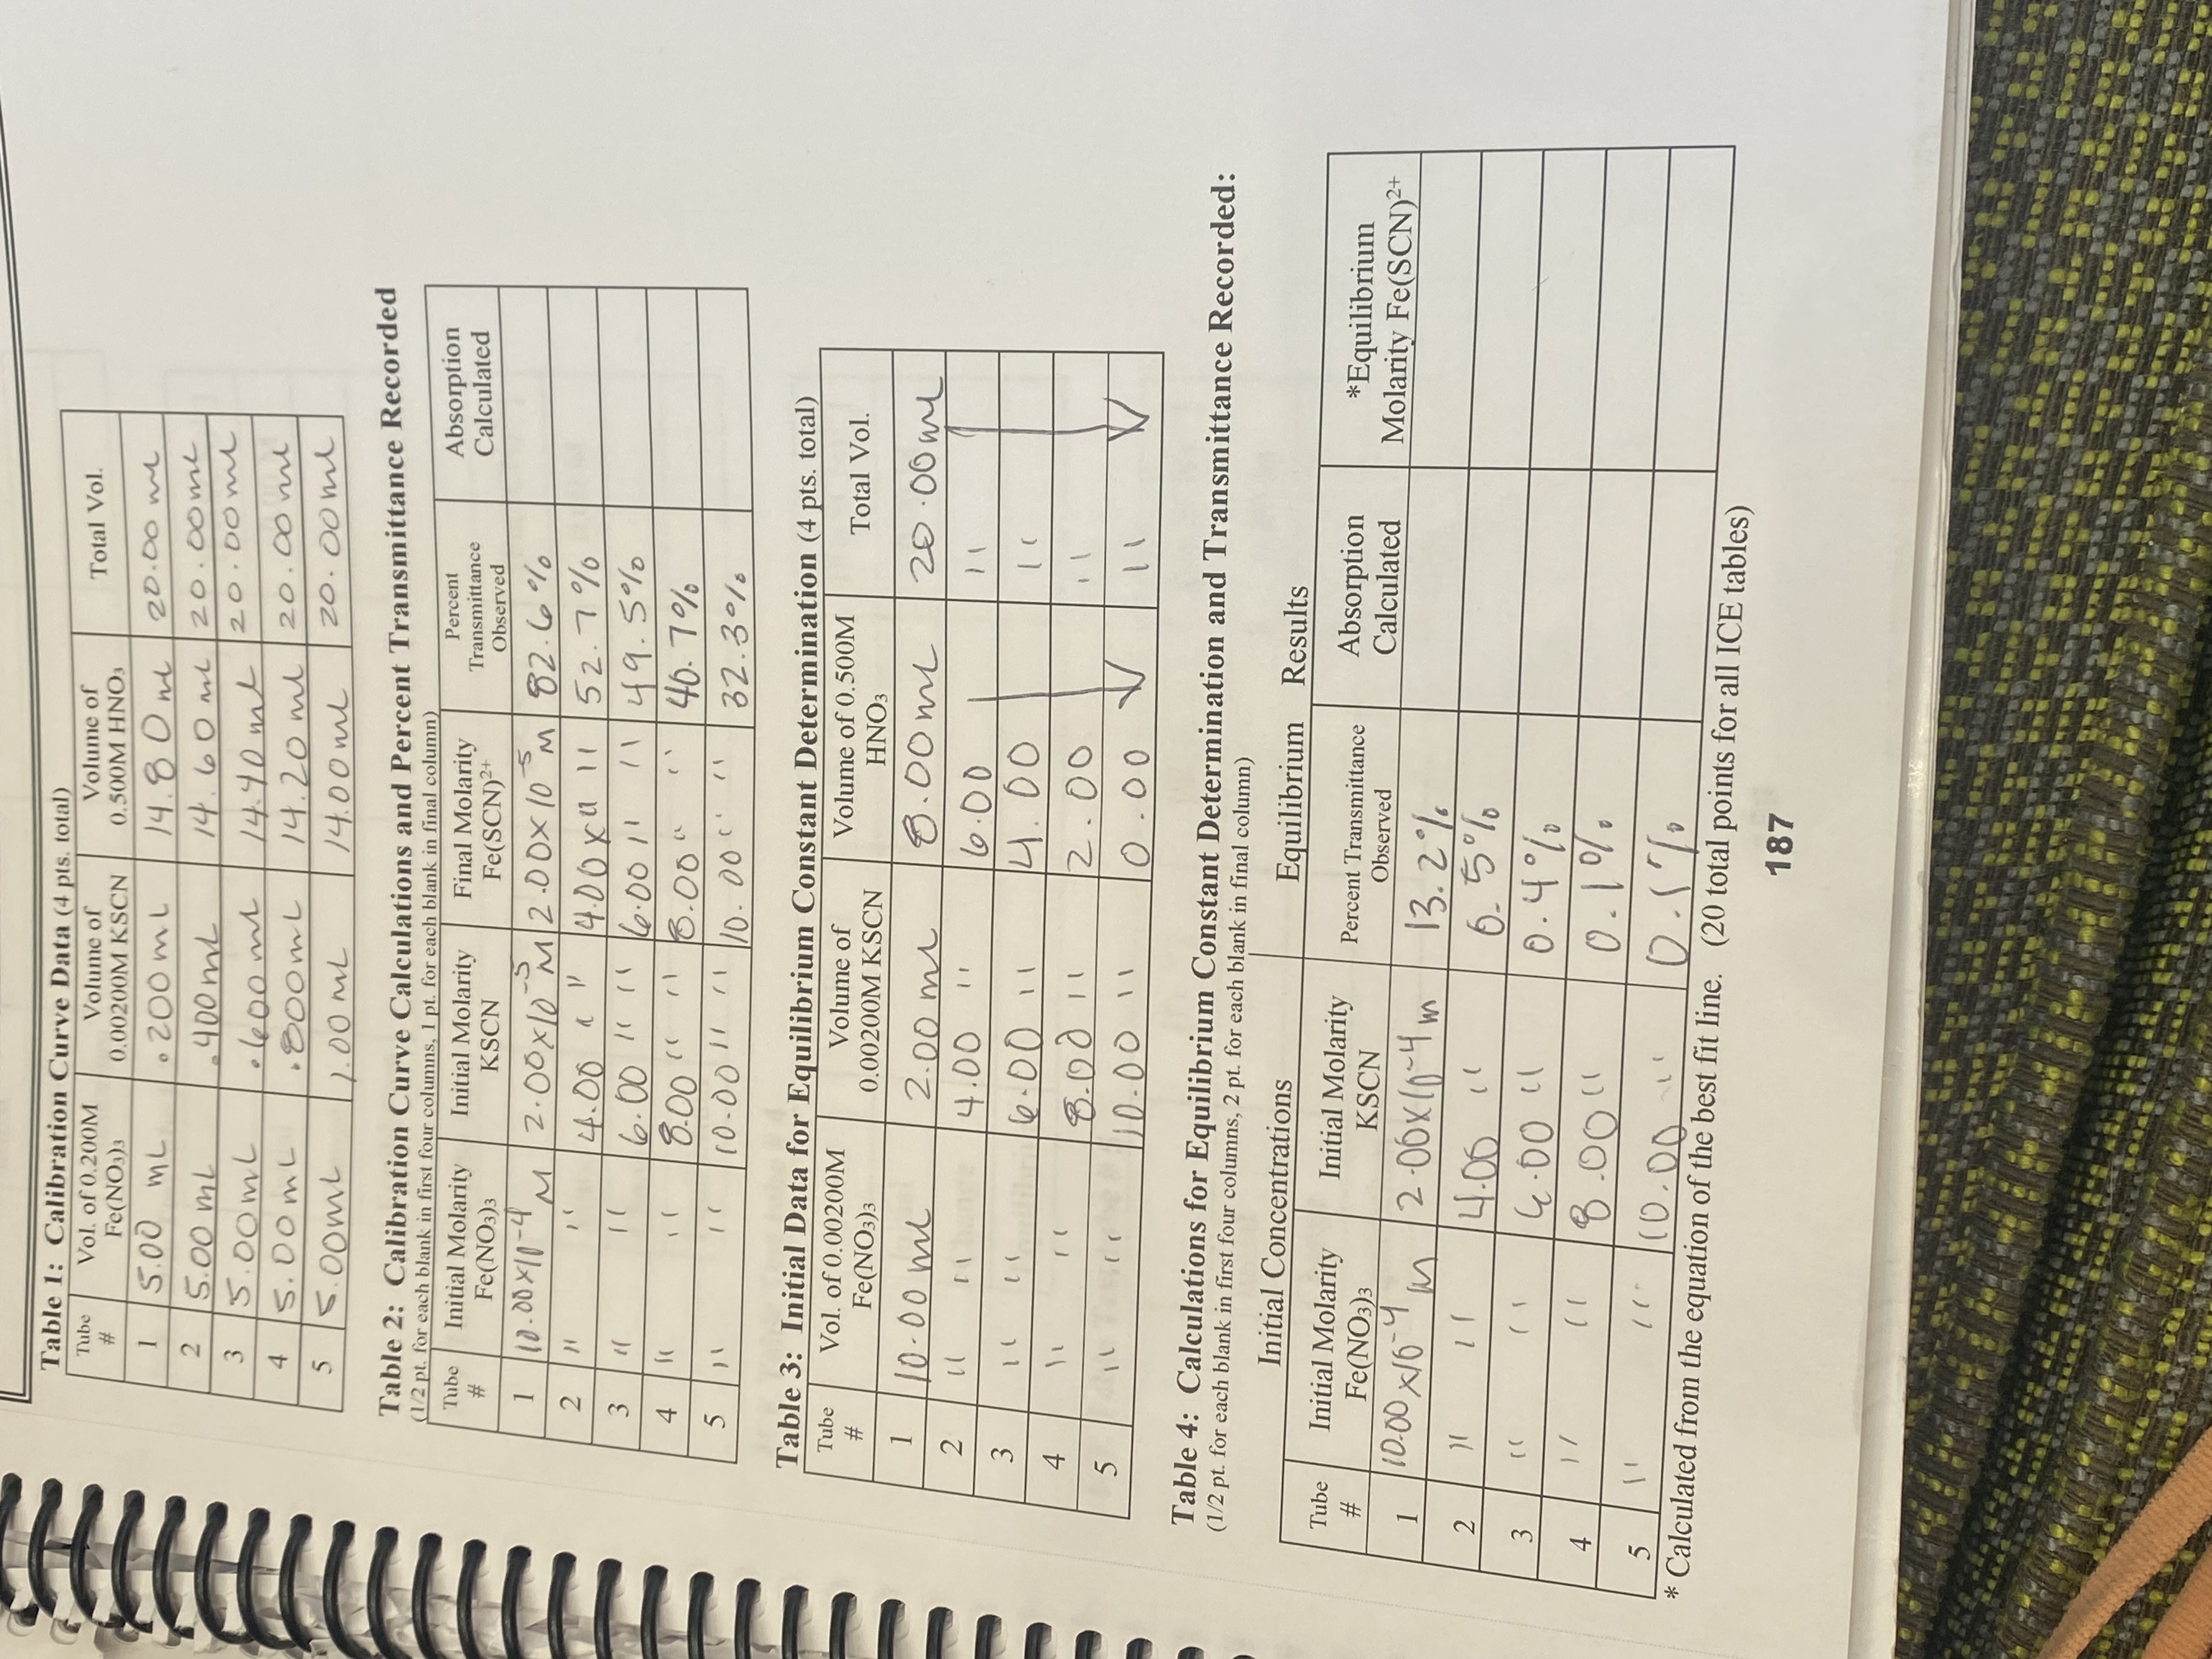 Table 1: Calibration Curve Data (4 pts. total)
Tube # Vol. of 0.200M Fe(NO₃)₃ Volume of 0.00200M KSCN Volume of 0.500M HNO₃ Total Vol.
1 5.00 mL .200 mL 14.80 mL 20.00 mL
2 5.00 mL .400 mL 14.60 mL 20.00 mL
3 5.00 mL .600 mL 14.40 mL 20.00 mL
4 5.00 mL .800 mL 14.20 mL 20.00 mL
5 5.00 mL 1.00 mL 14.00 mL 20.00 mL
Table 2: Calibration Curve Calculations and Percent Transmittance Recorded
(1/2 pt. for each blank in first four columns, 1 pt. for each blank in final column)
Tube # Initial Molarity Fe(NO₃)₃ Initial Molarity KSCN Final Molarity Fe(SCN)²⁺ Percent Transmittance Observed Absorption Calculated
1 10.00x10⁻⁴ M 2.00x10⁻⁵ M 2.00x10⁻⁵ M 82.6%
2 " " 4.00 " " 4.00 x " " 52.7%
3 " " 6.00 " " 6.00 " " 49.5%
4 " " 8.00 " " 8.00 " " 40.7%
5 " " 10.00 " " 10.00 " " 32.3%
Table 3: Initial Data for Equilibrium Constant Determination (4 pts. total)
Tube # Vol. of 0.00200M Fe(NO₃)₃ Volume of 0.00200M KSCN Volume of 0.500M HNO₃ Total Vol.
1 10.00 mL 2.00 mL 8.00 mL 20.00 mL
2 " " 4.00 " 6.00 "
3 " " 6.00 " 4.00 "
4 " " 8.00 " 2.00 "
5 " " 10.00 " 0.00 "
Table 4: Calculations for Equilibrium Constant Determination and Transmittance Recorded:
(1/2 pt. for each blank in first four columns, 2 pt. for each blank in final column)
Initial Concentrations Equilibrium Results
Tube # Initial Molarity Fe(NO₃)₃ Initial Molarity KSCN Percent Transmittance Observed Absorption Calculated *Equilibrium Molarity Fe(SCN)²⁺
1 10.00 x10⁻⁴ m 2.00x10⁻⁴ m 13.2%
2 " " 4.00 " 6.5%
3 " " 6.00 " 0.4%
4 " " 8.00 " 0.1%
5 " " 10.00 " 0.1%
* Calculated from the equation of the best fit line. (20 total points for all ICE tables)
187